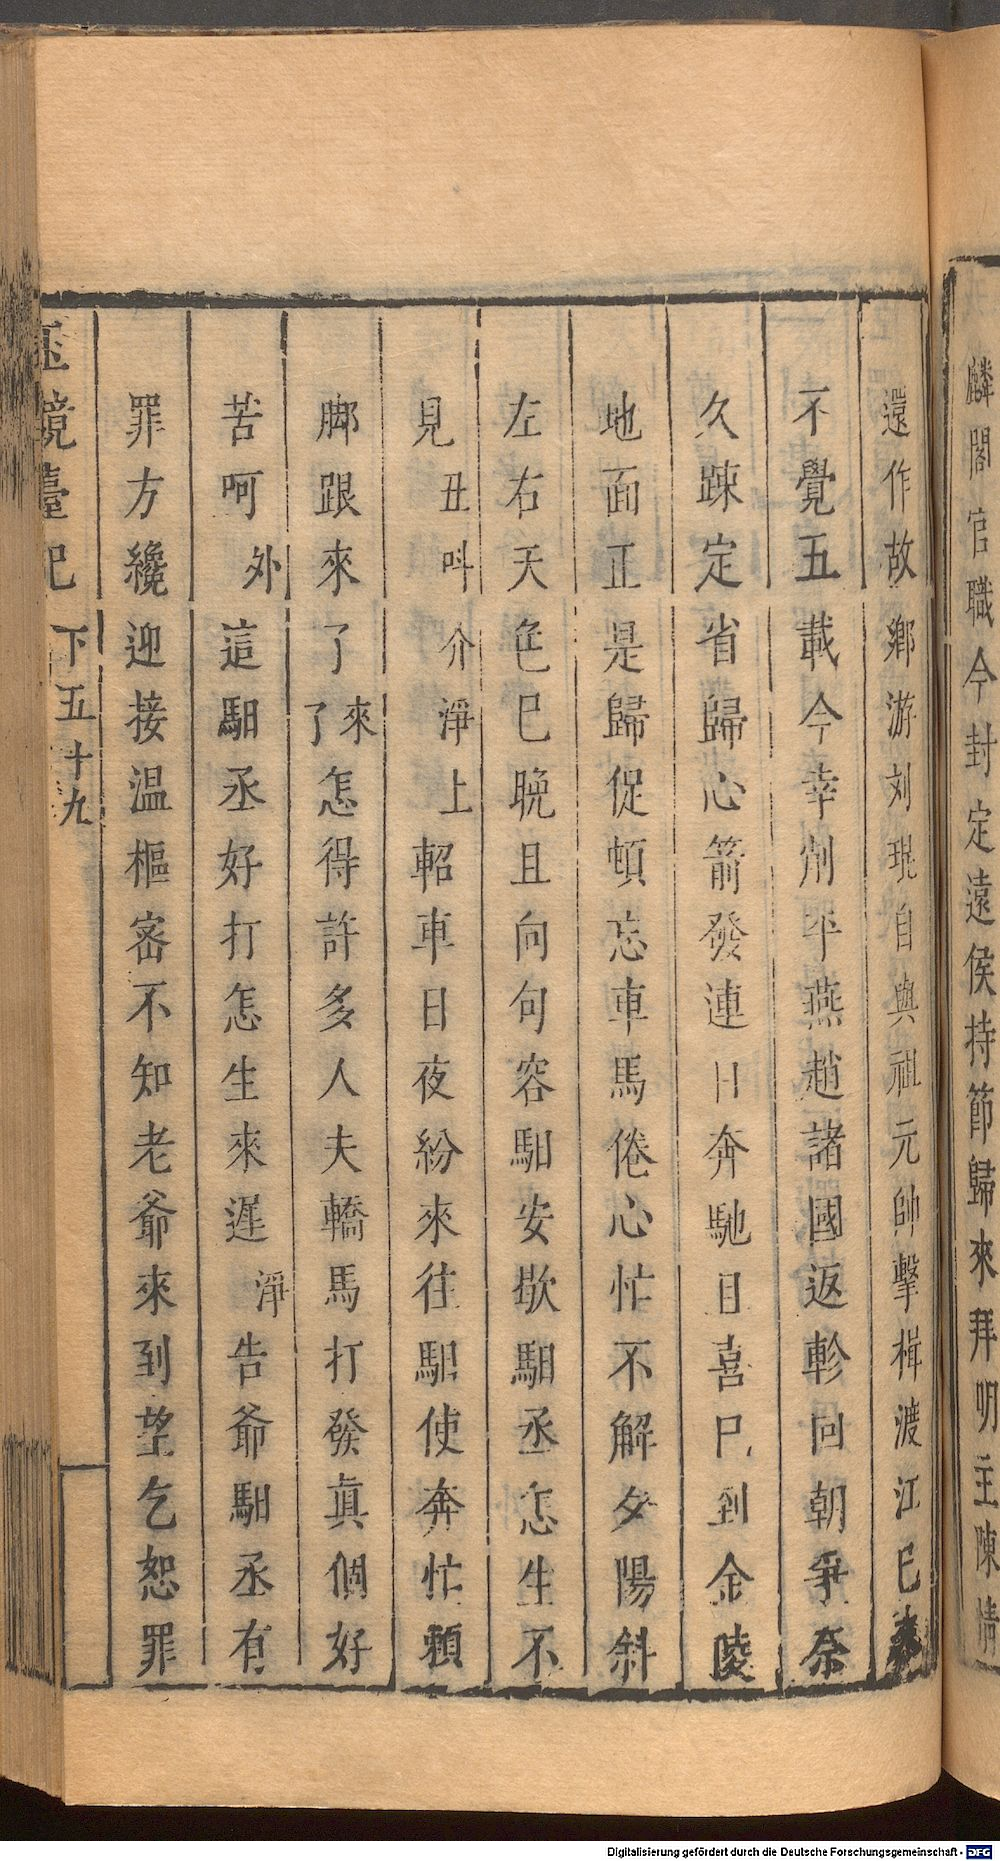 麟閣官職今封定遠侯持節歸來拜明主陳情
還作故鄉游刘琨自與祖元帥擊楫渡江已
不覺五載今幸州平燕趙諸國返軫回朝爭奈
久踈定省歸心箭發連日奔馳目喜已到金陵
地面正是歸促頓忘車馬倦心忙不解夕陽斜
左右天色已晚且向句容馹安歇馹丞怎生不
見丑呌介淨上軺車日夜紛來往馹使奔忙頼
脚跟來了來了怎得許多人夫轎馬打發眞個好
苦呵外這馹丞好打怎生來遲淨告爺馹丞有
罪方纔迎接温樞密不知老爺來到望乞恕罪
玉鏡臺記 下五十九
Digitalisierung gefördert durch die Deutsche Forschungsgemeinschaft - DFG